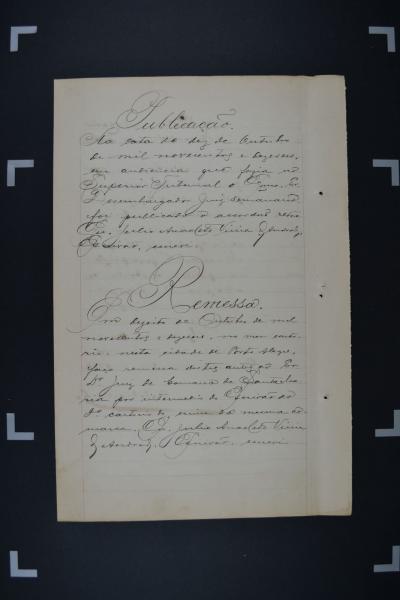 Publicação.
Na data de dez de Outubro
de mil novecentos e dezeseis,
em audiencia que fazia no
Superior Tribunal o Exmo. Sr.
Desembargador Juiz semanario,
foi publicado o accordão retro.
Eu, Julio Anacleto Vieira
Escrivão, escrevi
Remessa.
Em dezoito de Outubro de mil
novecentos e dezeseis, no meu carto-
rio, nesta cidade de Porto Alegre,
faço remessa destes autos ao Sr.
Dr. Juiz da Comarca de
por intermedio do Escrivão do
cartorio, da mesma co-
marca. Eu, Julio Anacleto Vieira
Escrivão, escrevi